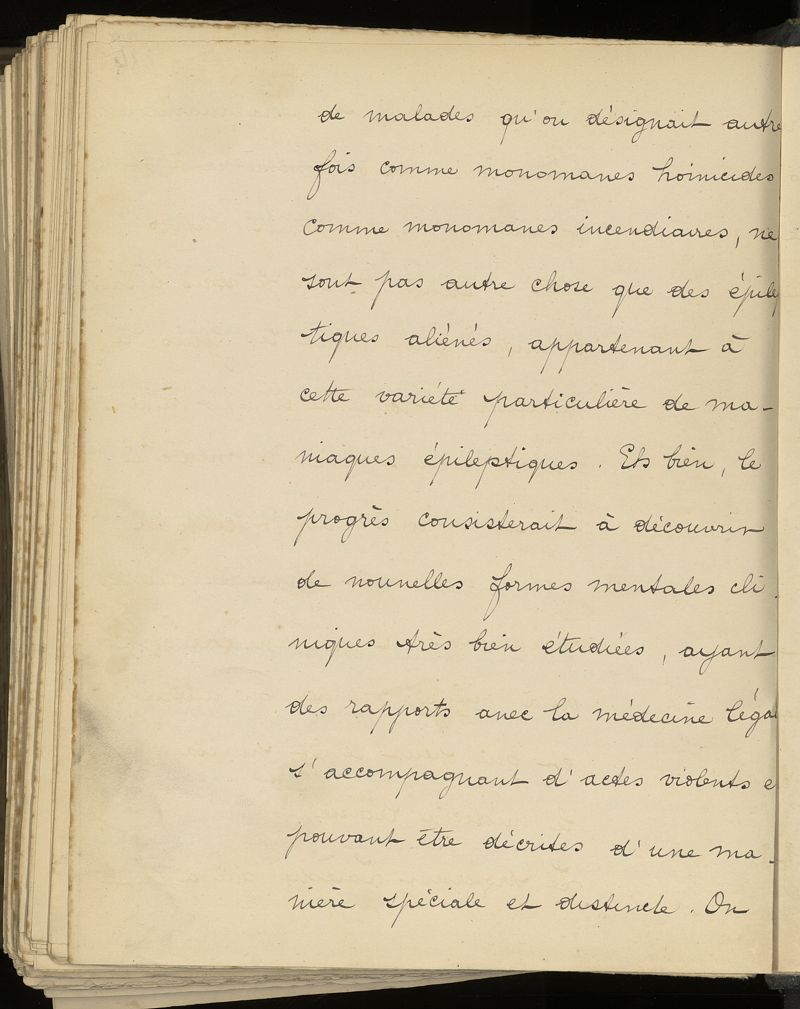 de malades qu'on désignait autre
fois comme monomanes homicides
comme monomanes incendiaires, ne
sont pas autre chose que des épilep
tiques aliénés, appartenant à
cette variété particulière de ma-
niaques épileptiques. Eh bien, le
progrès consisterait à découvrir
de nouvelles formes mentales cli
niques très bien étudiées, ayant
des rapports avec la médecine légal
s'accompagnant d'actes violents e
pouvant être décrites d'une ma-
nière spéciale et distincte. On